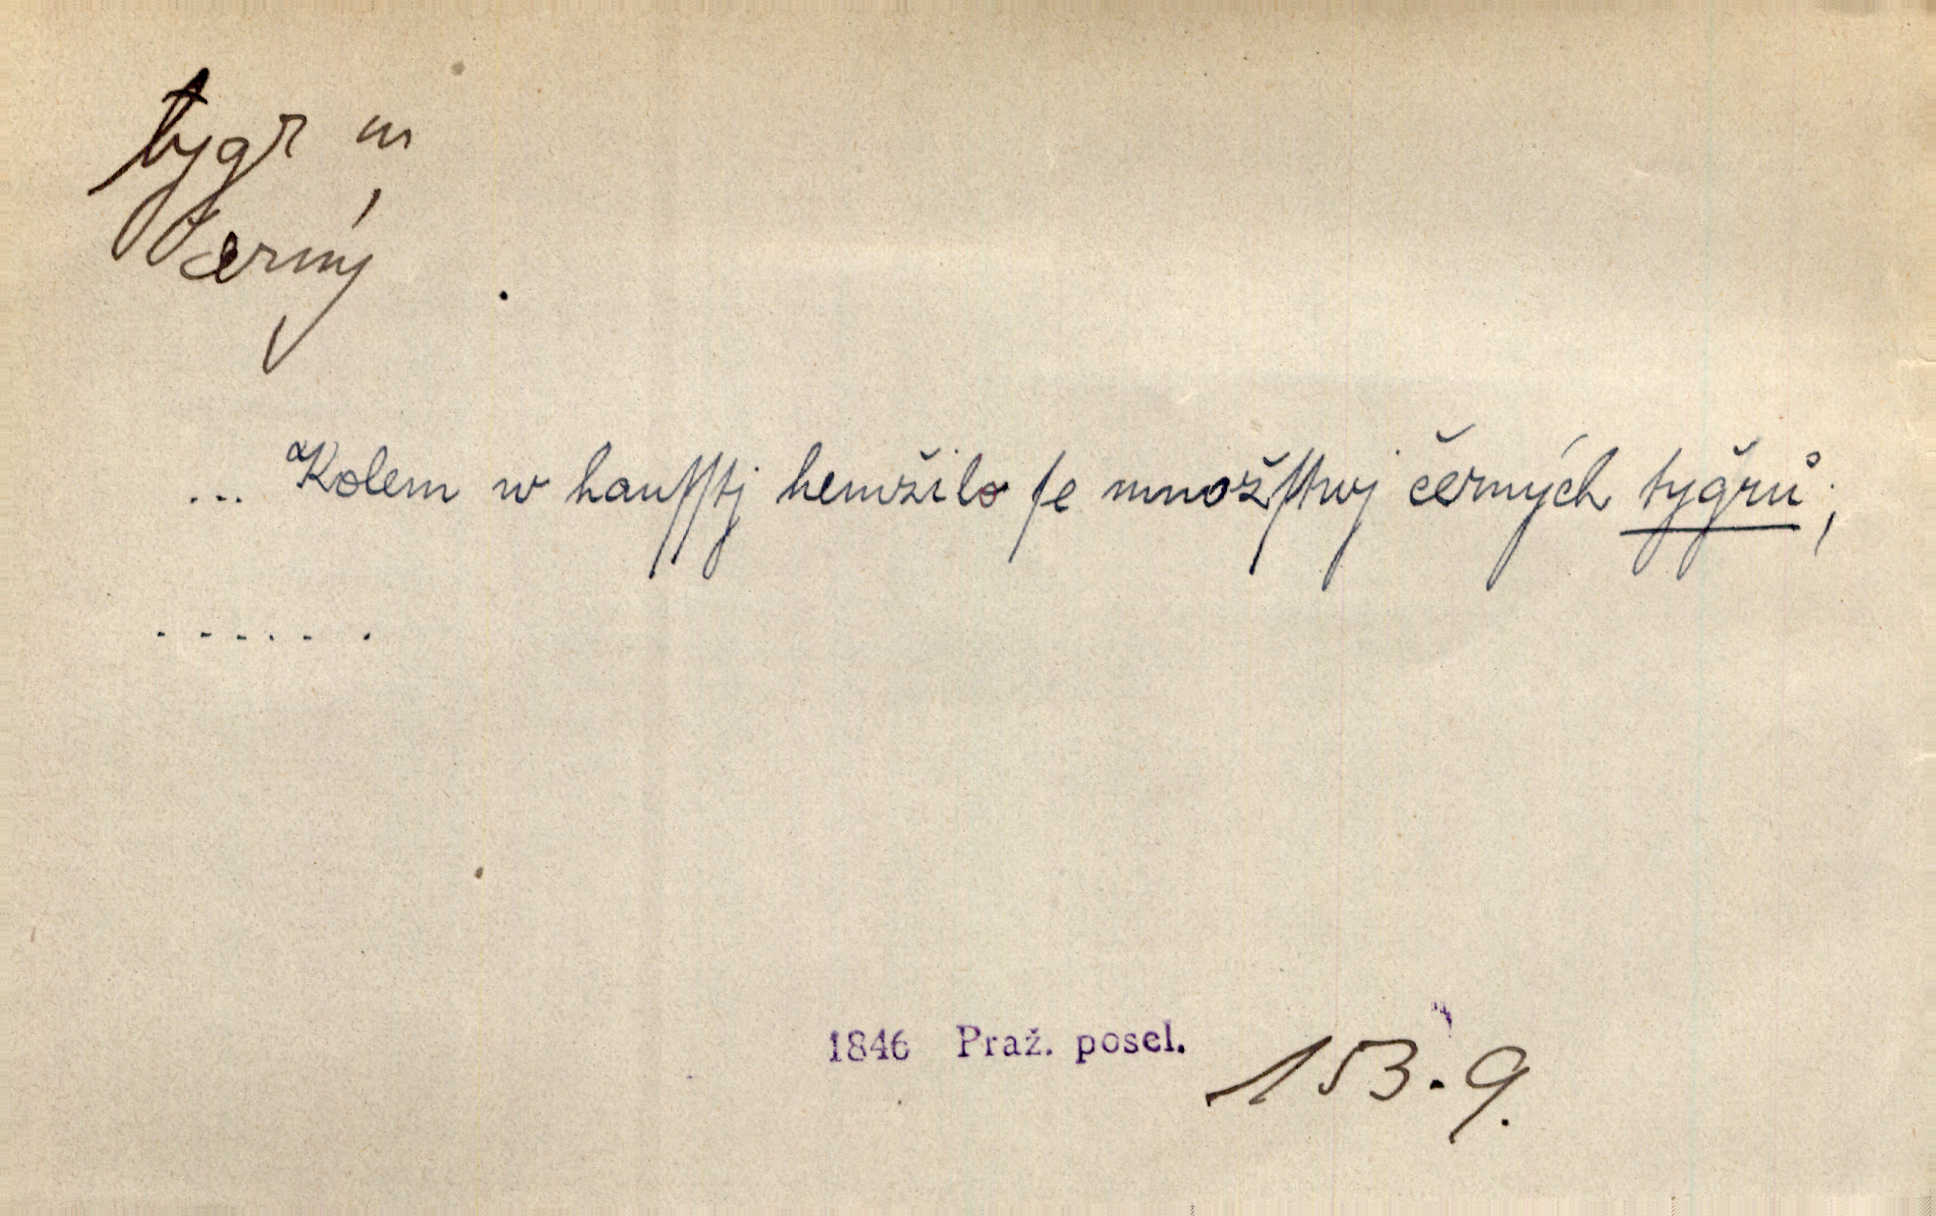 tygr m
černý
... Kolem w hauſſtj hemžilo ſe množſtwj černých tyǧrů;
......
1846 Praž. posel. 153. 9.